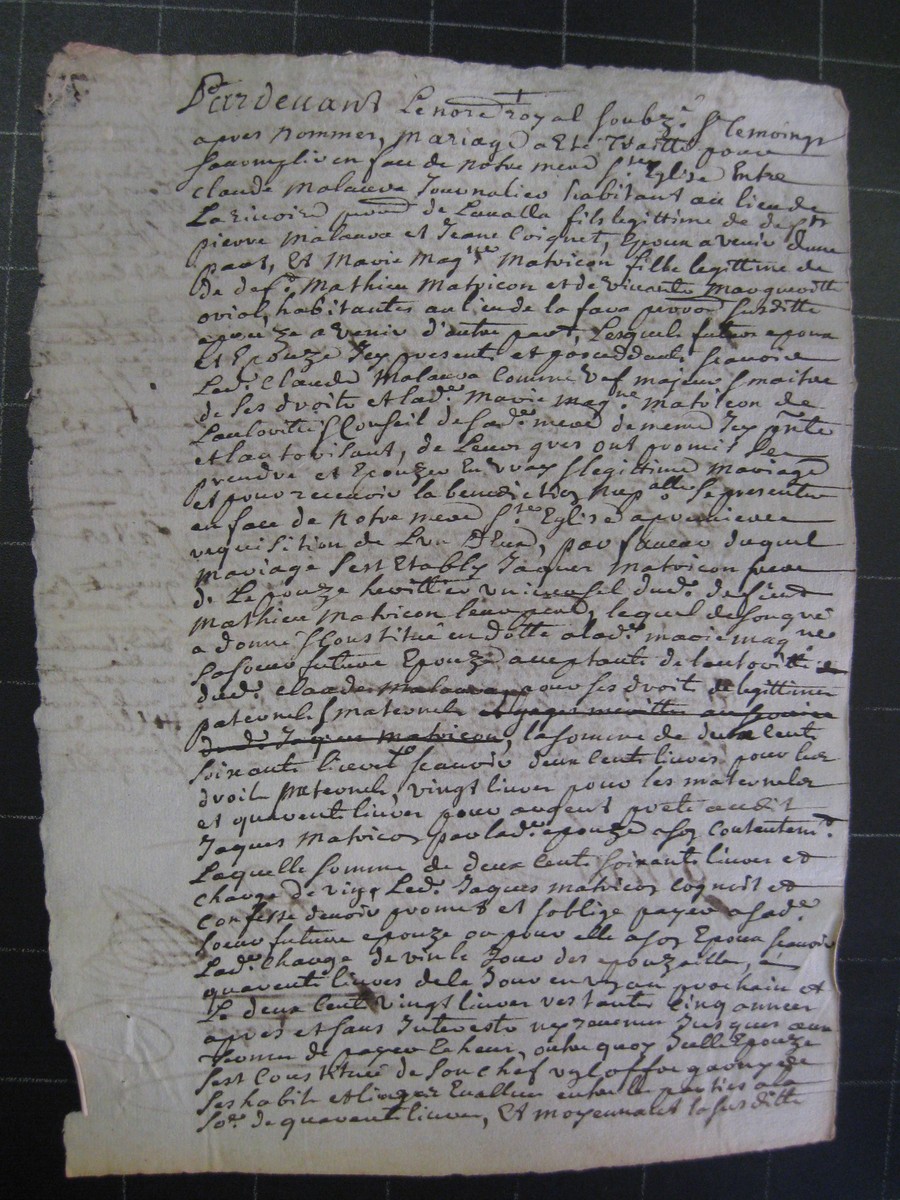 Pardevant Le nore royal soubz.é & temoings
apres nommes, Mariage a Eté Traitté pour
saccomplir en face de notre mere S.te Eglise Entre
Claude Malauva Journalier habitant au lieu de
La Rivoire parr de Lavalla fils legittime de def.ts
pierre Malauva et Jeane Coignet, Epoux a venir dune
part, Et Marie Mag.ne Matricon fille legittime de
de def.t Mathieu Matricon et de vivante Margueritte
oriol, habitantes au lieu de la fara parr susditte
epouze a venir d'autre part, Lesquels futurs epoux
et Epouze Icy presents et proceddants scavoir
Led.t Claude Malauva Comme maieur & maitre
de ses droits et lad.e Marie mag.ne Matricon de
Lauthoritté & Conseil de sad.e mere de meme Icy pnte
et lauthorisant, de Leurs gres ont promis se
prendre et Epouzer En vray & legittime mariage
et pour recevoir la benediction nup.alle se presenter
en face de Notre mere S.te Eglise a premiere
requisition de L'un D'eux, par faveur duquel
Mariage sest Etably Jaques Matricon frere
de Lepouze herittier universel dud.t defunt
Mathieu Matricon leur pere, lequel de son gré
a donné & Constitué en dotte a lad.e marie mag.ne
sa soeur future Epouze acceptante de lauthoritté
dud.t claude Malauva pour ses droits de legittimes
paternels & maternels
dud.t Jaques Matricon, la somme de deux cent
soixante livres scavoir deux cents livres pour les
droits paternels, vingt livres pour les maternels
et quarente livres pour argent preté audit
Jaques Matricon par lad.e epouze a son Contentem.t
Laquelle somme de deux cents soixante livres et
charge de vin, Led.t Jaques Matricon cognoit et
Confesse devoir promet et soblige payer a sad.e
soeur future epouze ou pour elle a son Epoux scavoir
Lad.e Charge de vin le Jour des epouzailles,
quarente livres dela Jour en un an prochain et
Le deux cent vingt livres restants Cinq annees
apres et sans Interests ny revenus Jusques aux
termes de payer Echeus, outre quoy Icelle Epouze
sest Constituée de son Chef
ses habits et linges Evallues entre les parties a la
so.e de quarente livres, Et moyennant la susditte